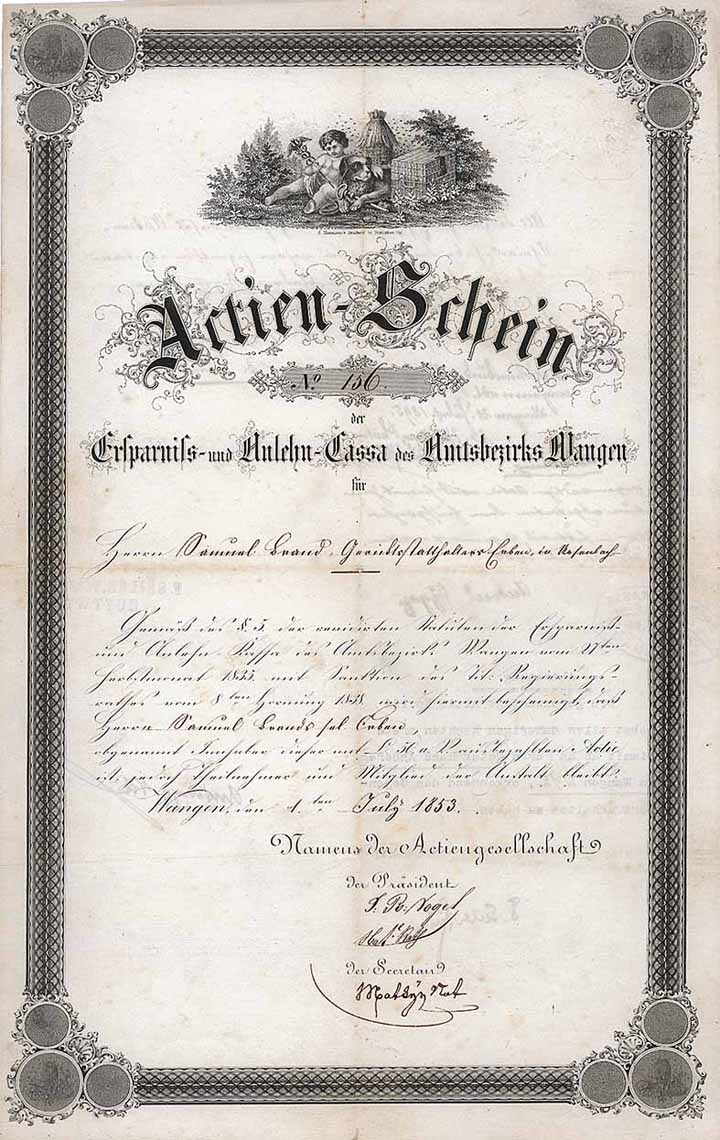 Actien-Schein
No 156.
der
Ersparniss- und Anlehn-Cassa des Amtsbezirks Wangen
für
Herrn Samuel Brand, Gerichtsstatthalters Erben, in Ursenbach
Gemäss des §. 5. der revidirten Statuten der Ersparniss-
und Anlehn-Kassa des Amtsbezirks Wangen vom 27ten
Herbstmonat mit Sanktion des tit. Regierungs-
rathes vom 8ten Hornung wird hiermit bescheinigt, dass
Herrn Samuel Brands sel. Erben,
obgenannt Inhaber dieser mit bezahlten Actie
ist, jedoch Theilnehmer und Mitglied der Anstalt bleibt.
Wangen, den 1.ten July 1853.
Namens der Actiengesellschaft
der Präsident
Vogel
der Secretair